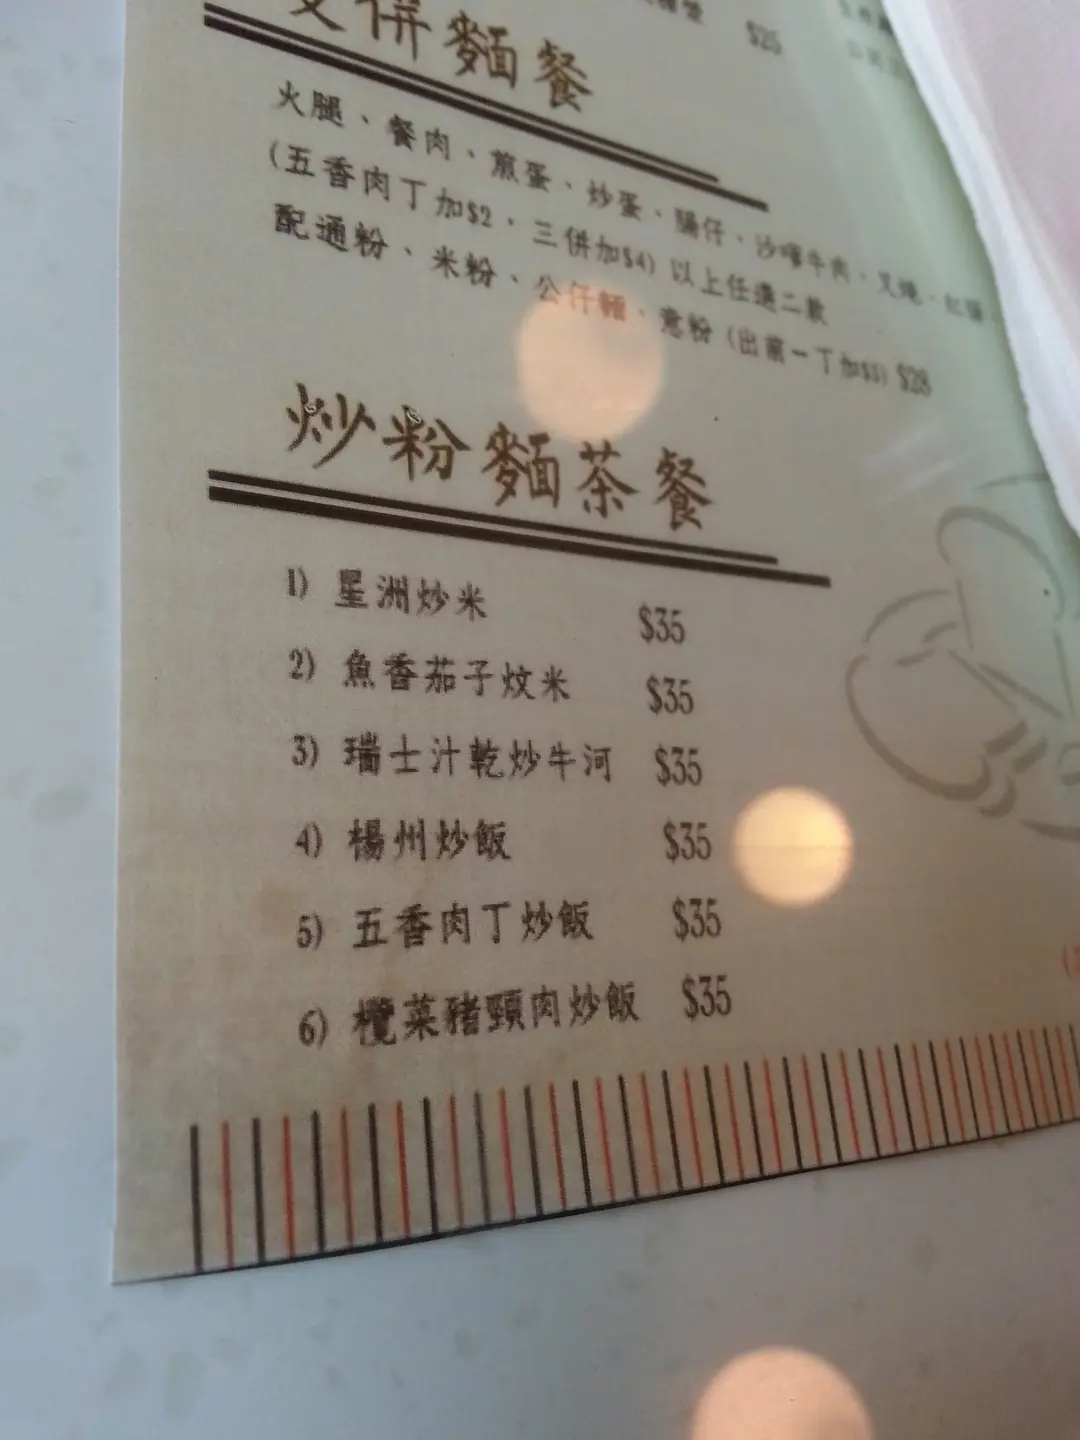 $25
雙併麵餐
火腿、餐肉、煎蛋、炒蛋、腸仔、沙嗲牛肉、叉燒、紅腸
(五香肉丁加$2，三併加$4) 以上任選二款
配通粉、米粉、公仔麵、意粉 (出前一丁加$3) $28
炒粉麵茶餐
1) 星洲炒米 $35
2) 魚香茄子炆米 $35
3) 瑞士汁乾炒牛河 $35
4) 楊州炒飯 $35
5) 五香肉丁炒飯 $35
6) 欖菜豬頸肉炒飯 $35